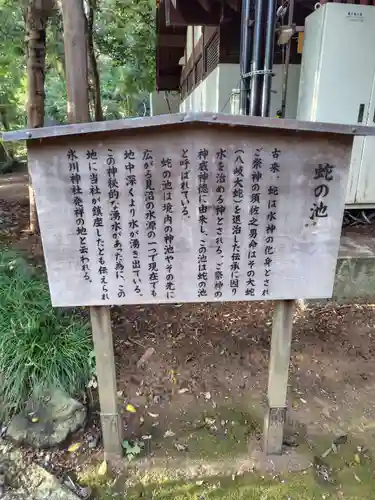 蛇の池
古来、蛇は水神の化身とされ
ご祭神の須佐之男命はその大蛇
（八岐大蛇）を退治した伝承に因り
神威神徳に由来し、この池は蛇の池
と呼ばれている。
蛇の池は境内の神池やその先に
広がる見沼の水源の一つで現在でも
地中深くより水が湧き出ている。
この神秘的な湧水があった為に、この
地に当社が鎮座したとも伝えられ
氷川神社発祥の地と云われる。